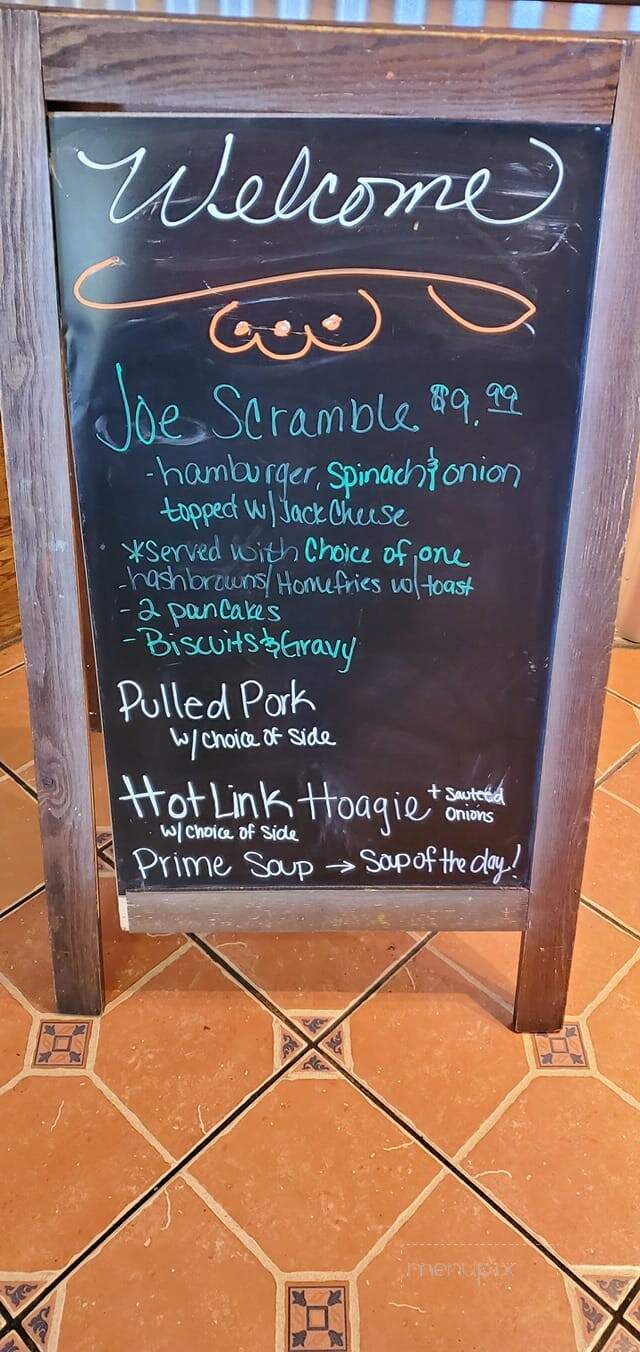 Welcome
Joe Scramble $9.99
-hamburger, Spinach & onion
topped w/ Jack Cheese
*Served with Choice of one
-hashbrowns/Homefries w/ toast
-2 pancakes
-Biscuits & Gravy
Pulled Pork
w/ choice of side
Hot Link Hoagie + sauteed onions
w/ choice of side
Prime Soup → Soup of the day!
menupix